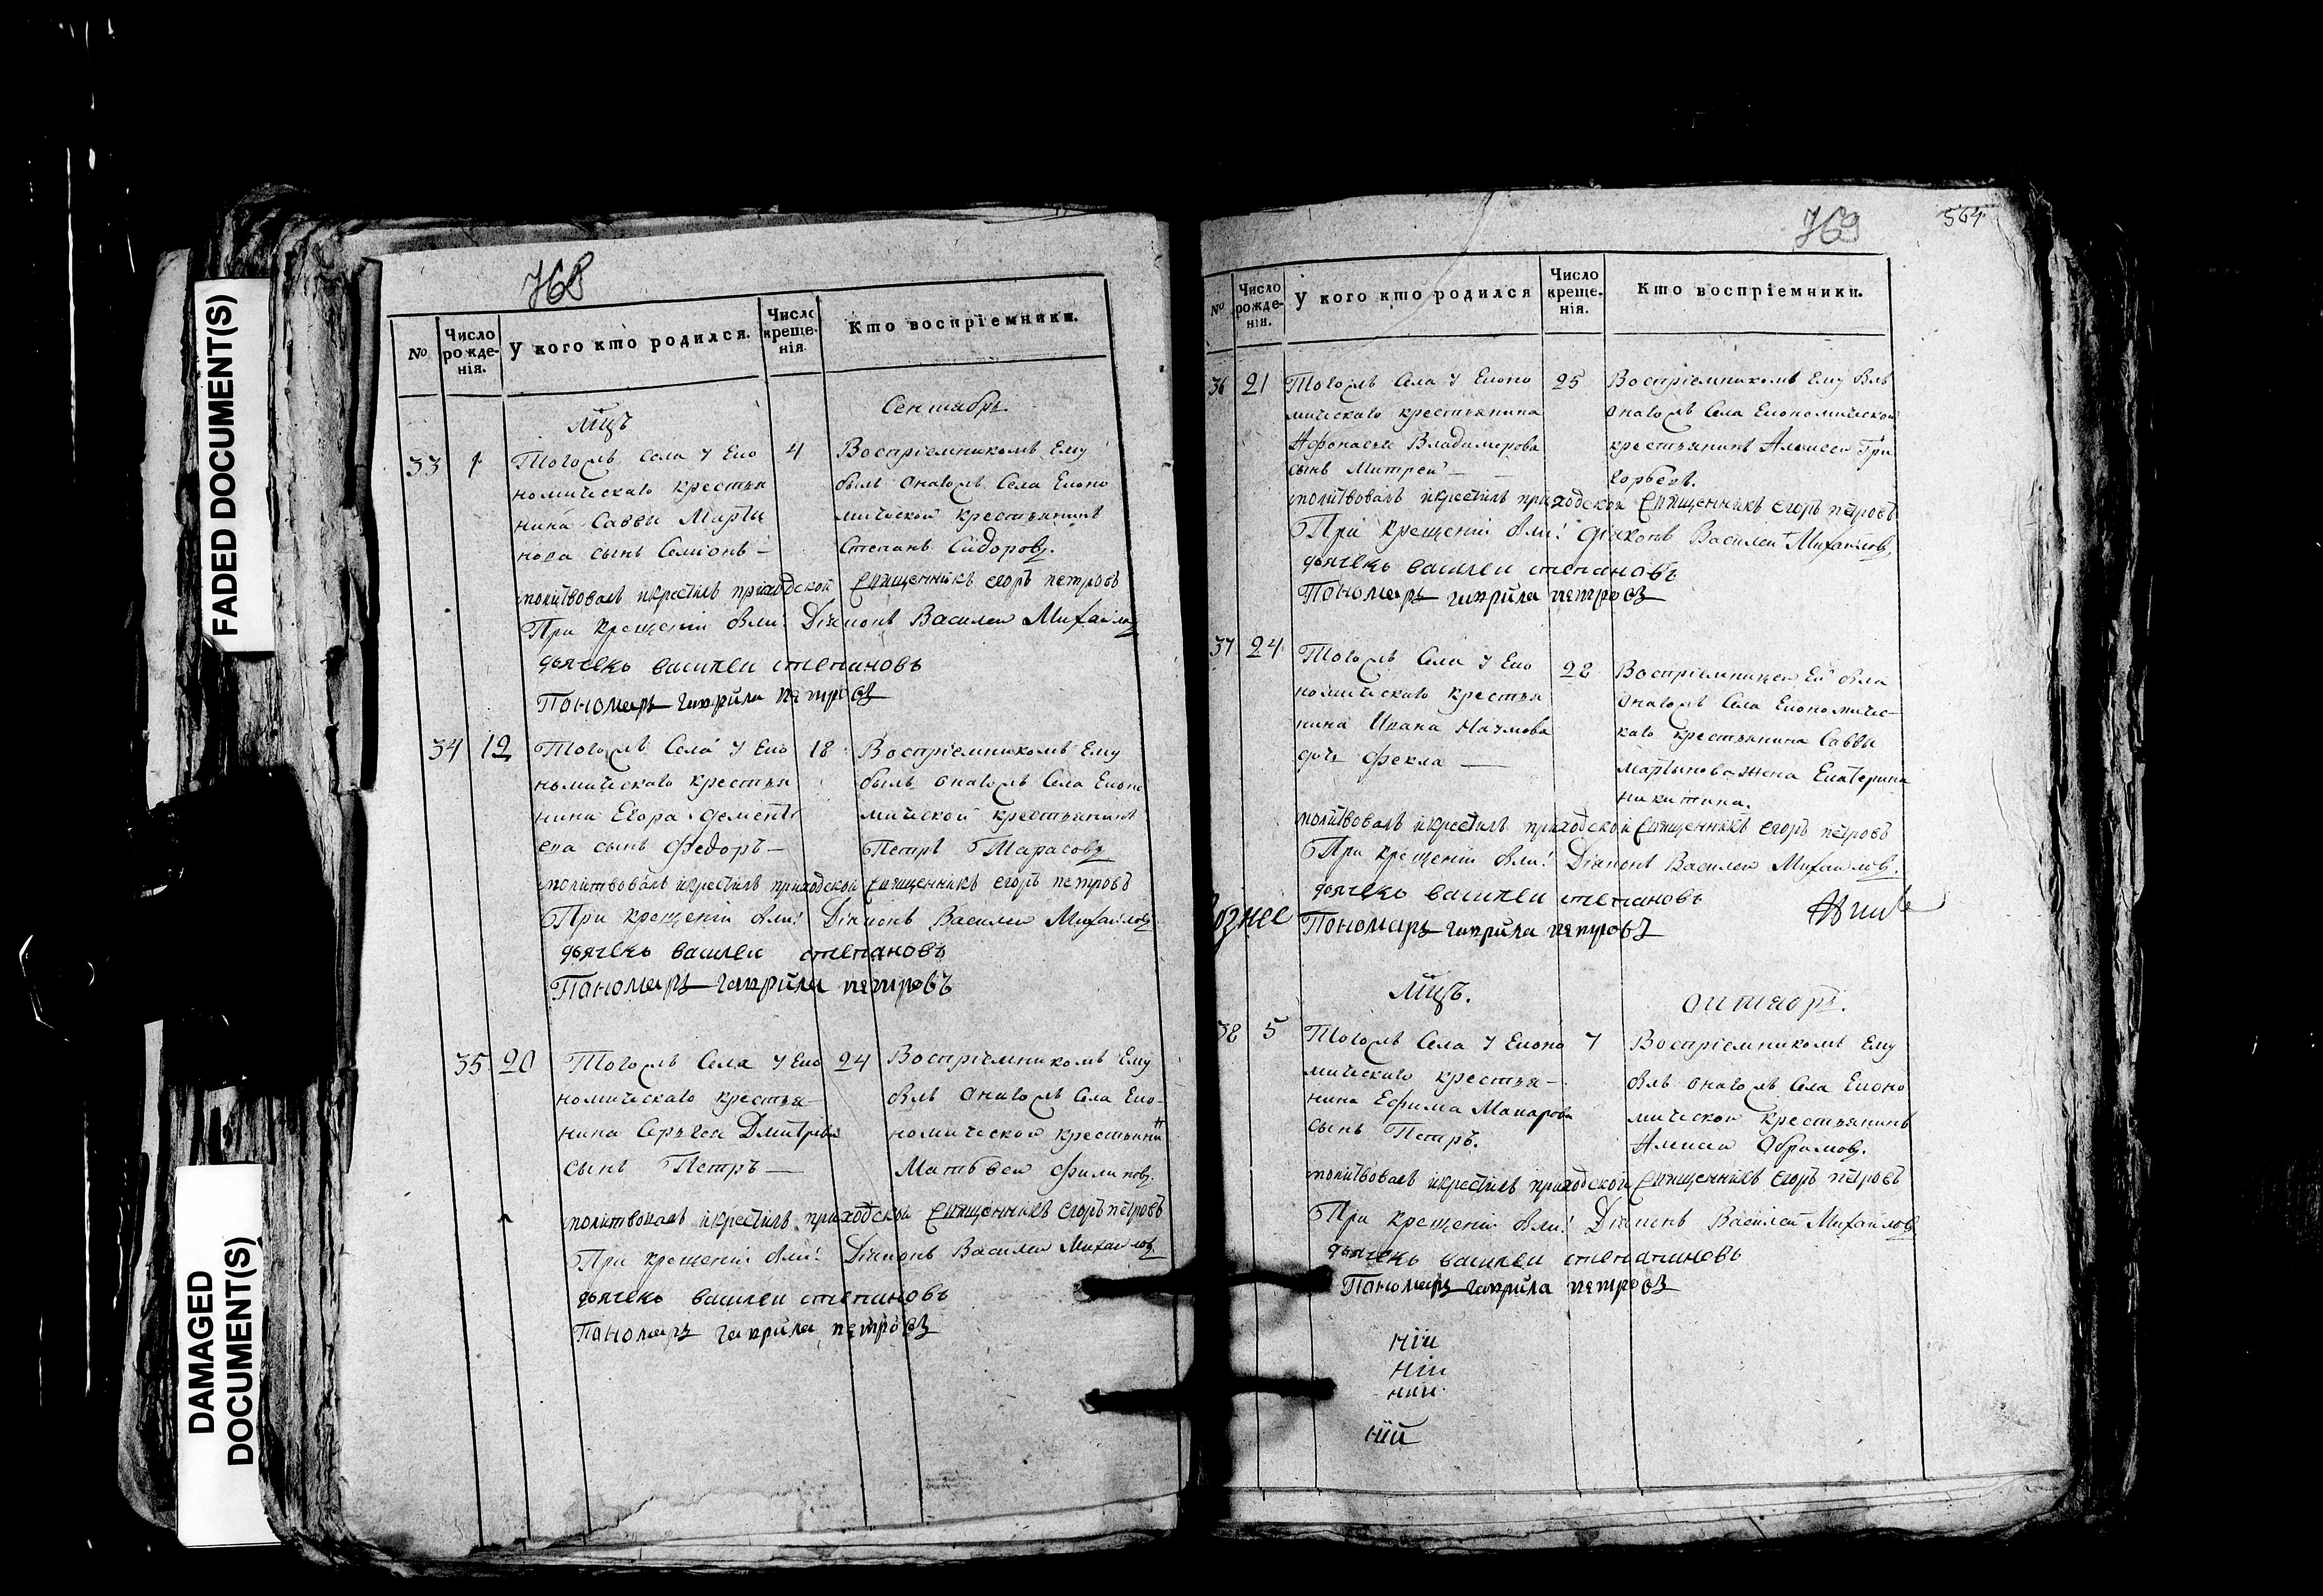 FADED DOCUMENT(S)
DAMAGED
DOCUMENT(S)
768
№
Число рожде-нія.
У кого кто родился.
Число креще-нія.
Кто воспріемники.
мцъ
Сентябрь.
33
1
Тогожъ села у Еко
номическаго крестья
нина Саввы Марты
нова сынъ Семіонъ —
4
Воспріемникомъ Ему
былъ онагожъ Села Еконо
мической крестьянинъ
Степанъ Сидоровъ.
молитвовалъ икрестилъ приходской Священникъ егоръ петровъ
При крещеніи были: Діяконъ Василеи Михайлов
дьячекъ василеи степановъ
Пономарь гаврила петровъ
34
12
Тогожъ Села у Еко
номическаго крестья
нина Егора Дементь
ева сынъ Федоръ —
18
Воспріемникомъ Ему
былъ онагожъ Села Еконо
мической крестьянинъ
Петръ Тарасовъ
молитвовалъ икрестилъ приходской Священникъ егоръ петровъ
При крещеніи были: Діяконъ Василеи Михайловъ
дьячекъ василеи степановъ
Пономарь гаврила петровъ
35
20
Тогожъ Села у Еко
номическаго крестья
нина Сергея Дмитріева
сынъ Петръ —
24
Воспріемникомъ Ему
былъ онагожъ Села Еко-
номической крестьянинъ
Матвеи Филиповъ.
молитвовалъ икрестилъ приходской Священникъ егоръ петровъ
При крещеніи были: Діяконъ Василеи Михайлов
дьячекъ василеи степановъ
Пономарь гаврила петровъ
769
564
№
Число рожде-нія.
У кого кто родился
Число креще-нія.
Кто воспріемники.
36
21
Тогожъ Села у Еконо
мическаго крестьянина
Афонасья Владимерова
сынъ Митрей —
25
Воспріемникомъ Ему былъ
онагожъ Села Економической
крестьянинъ Алексеи Гри
горьевъ.
молитвовалъ икрестилъ приходской Священникъ егоръ петровъ
При крещеніи были: Діяконъ Василеи Михайловъ,
дьячекъ василеи степановъ
Пономарь гаврила петровъ
37
24
Тогожъ Села у Еко
номическаго крестья
нина Ивана Наумова
дочь Фекла —
28
Воспріемницеи Ей была
онагожъ Села Економичес-
каго крестьянина Саввы
мартынова жена Екатерина
никитина.
молитвовалъ икрестилъ приходской Священникъ егоръ петровъ
При крещеніи были: Діяконъ Василеи Михайловъ.
дьячекъ василеи степановъ
Пономарь гаврила петровъ
мцъ.
октябрь.
38
5
Тогожъ Села у Еконо
мическаго крестья-
нина Ефима Макарова
сынъ Петръ.
7
Воспріемникомъ Ему
былъ онагожъ Села Еконо
мической крестьянинъ
Алексеи Абрамовъ.
молитвовалъ икрестилъ приходской Священникъ егоръ петровъ
При крещеніи были: Діяконъ Василей Михайловъ
дьячекъ василеи степатановъ
Пономарь гаврила петровъ
ній
ній
ній
ній